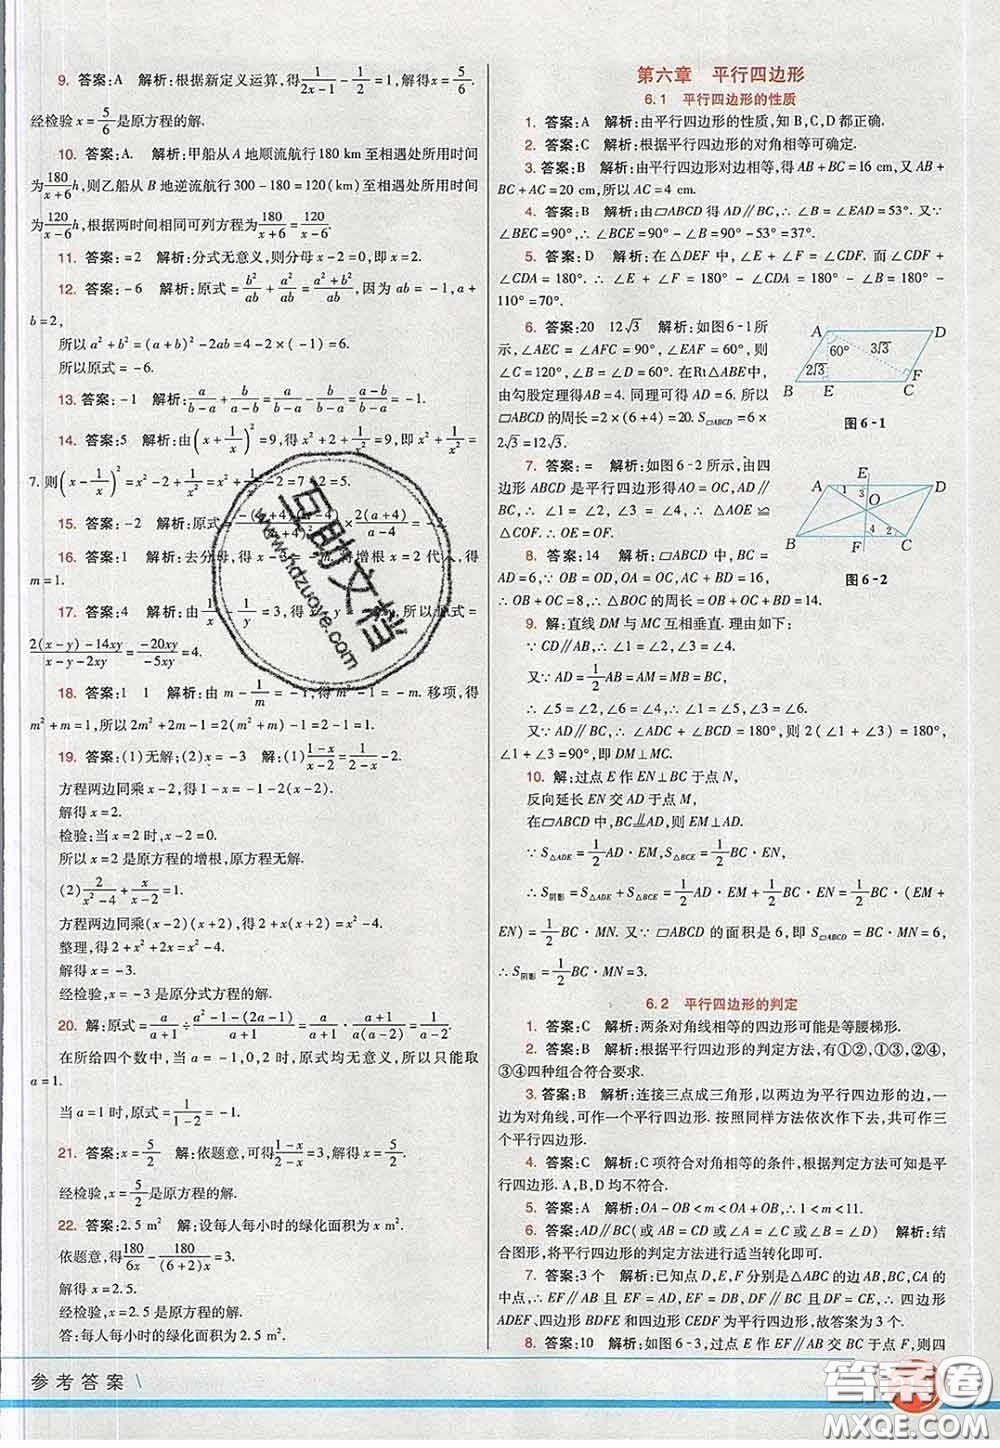 9. 答案:A 解析:根据新定义运算,得1/(2x-1)-1/x=1,解得x=5/6.
经检验x=5/6是原方程的解.
10. 答案:A. 解析:甲船从A地顺流航行180 km至相遇处所用时间
为180/(x+6)h,则乙船从B地逆流航行300-180=120(km)至相遇处所用时
间为120/(x-6)h,根据两时间相同可列方程180/(x+6)=120/(x-6).
11. 答案:=2 解析:分式无意义,则分母x-2=0,即x=2.
12. 答案:-6 解析:原式=b²/ab+a²/ab=(a²+b²)/ab,因为ab=-1,a+
b=2,
所以a²+b²=(a+b)²-2ab=4-2×(-1)=6.
所以原式=-6.
13. 答案:-1 解析:a/(b-a)+b/(a-b)=a/(b-a)-b/(b-a)=(a-b)/(b-a)=-1.
14. 答案:5 解析:由(x+1/x)²=9,得x²+2+1/x²=9,即x²+1/x²=
7.则(x-1/x)²=x²-2+1/x²=x²+1/x²-2=7-2=5.
15. 答案:-2 解析:原式=-(a+4)(a-4)/ ×2(a+4)/(a-4)=
16. 答案:1 解析:去分母,得x- =m,将增根x=2代入,得
m=1.
17. 答案:4 解析:由1/x-1/y=3,得 所以原式=
(2(x-y)-14xy)/(x-y-2xy)=-20xy/-5xy=4.
18. 答案:1 1 解析:由m-1/m=-1,得m²-1=-m.移项,得
m²+m=1,所以2m²+2m-1=2(m²+m)-1=2-1=1.
19. 答案:(1)无解;(2)x=-3 解:(1)(1-x)/(x-2)=1/(2-x)-2.
方程两边同乘x-2,得1-x=-1-2(x-2).
解得x=2.
检验:当x=2时,x-2=0.
所以x=2是原方程的增根,原方程无解.
(2)2/(x²-4)+x/(x-2)=1.
方程两边同乘(x-2)(x+2),得2+x(x+2)=x²-4.
整理,得2+x²+2x=x²-4.
解得x=-3.
经检验,x=-3是原分式方程的解.
20. 解:原式=a/(a+1)÷(a²-1-(2a-1))/(a+1)=a/(a+1)·(a+1)/(a(a-2))=1/(a-2).
在所给四个数中,当a=-1,0,2时,原式均无意义,所以只能取
a=1.
当a=1时,原式=1/(1-2)=-1.
21. 答案:x=5/2 解:依题意,可得(1-x)/(2-x)=3,解得x=5/2.
经检验,x=5/2是原方程的解.
22. 答案:2.5 m² 解:设每人每小时的绿化面积为x m².
依题意,得180/6x-180/((6+2)x)=3.
解得x=2.5.
经检验,x=2.5是原方程的解.
答:每人每小时的绿化面积为2.5 m².
第六章 平行四边形
6.1 平行四边形的性质
1. 答案:A 解析:由平行四边形的性质,知B,C,D都正确.
2. 答案:C 解析:根据平行四边形的对角相等可确定.
3. 答案:B 解析:由平行四边形对边相等,得AB+BC=16 cm,又AB+
BC+AC=20 cm,所以AC=4 cm.
4. 答案:B 解析:由▱ABCD得AD∥BC,∴∠B=∠EAD=53°.又∵
∠BEC=90°,∴∠BCE=90°-∠B=90°-53°=37°.
5. 答案:D 解析:在△DEF中,∠E+∠F=∠CDF.而∠CDF+
∠CDA=180°.∴∠E+∠F=180°-∠CDA=180°-∠B=180°-
110°=70°.
6. 答案:20 12√3 解析:如图6-1所
示,∠AEC=∠AFC=90°,∠EAF=60°,则
∠C=120°,∠B=∠D=60°.在Rt△ABE中,
由勾股定理得AB=4.同理可得AD=6.所以
▱ABCD的周长=2×(6+4)=20.S▱ABCD=6×
2√3=12√3.
A D 60° 3√3 2√3 F B E C
图6-1
7. 答案:= 解析:如图6-2所示,由四
边形ABCD是平行四边形得AO=OC,AD∥
BC,∴∠1=∠2.又∠3=∠4,∴△AOE≌
△COF.∴OE=OF.
E A 1 3 D O 4 2 B F C
图6-2
8. 答案:14 解析:▱ABCD中,BC=
AD=6.又∵OB=OD,OA=OC,AC+BD=16,
∴OB+OC=8,∴△BOC的周长=BC+OB+OC=14.
9. 解:直线DM与MC互相垂直.理由如下:
∵CD∥AB,∴∠1=∠2,∠3=∠4.
又∵AD=1/2AB=AM=MB=BC.
∴∠5=∠2,∠6=∠4,∴∠1=∠5,∠3=∠6.
又∵AD∥BC,∴∠ADC+∠BCD=180°,即2(∠1+∠3)=180°,
∠1+∠3=90°,即DM⊥MC.
10. 解:过点E作EN⊥BC于点N,
反向延长EN交AD于点M,
在▱ABCD中,BC∥=AD,则EM⊥AD.
∵S△ADE=1/2AD·EM,S△BCE=1/2BC·EN,
∴S阴影=S△ADE+S△BCE=1/2AD·EM+1/2BC·EN=1/2BC·(EM+
EN)=1/2BC·MN.又∵▱ABCD的面积是6,即S▱ABCD=BC·MN=6,
∴S阴影=1/2BC·MN=3.
6.2 平行四边形的判定
1. 答案:C 解析:两条对角线相等的四边形可能是等腰梯形.
2. 答案:B 解析:根据平行四边形的判定方法,有①②,①③,②④,
③④四种组合符合要求.
3. 答案:B 解析:连接三点成三角形,以两边为平行四边形的边,一
边为对角线,可作一个平行四边形.按照同样方法依次作下去,共可作三
个平行四边形.
4. 答案:C 解析:C项符合对角相等的条件,根据判定方法可知是平
行四边形.A,B,D均不符合.
5. 答案:A 解析:OA-OB<m<OA+OB,∴1<m<11.
6. 答案:AD∥BC(或AB=CD或∠A=∠C或∠B=∠D) 解析:结
合图形,将平行四边形的判定方法进行适当转化即可.
7. 答案:3个 解析:已知点D,E,F分别是△ABC的边AB,BC,CA的
中点,∴EF∥AB且EF=DB,DF∥BC且DF=EC,∴四边形
ADEF,四边形BDFE和四边形CEDF为平行四边形,故答案为3个.
8. 答案:10 解析:如图6-3,过点E作EF∥AB交BC于点F,则四
参考答案
互助文档
www.hdzuoye.com
答案圈
MXQE.COM